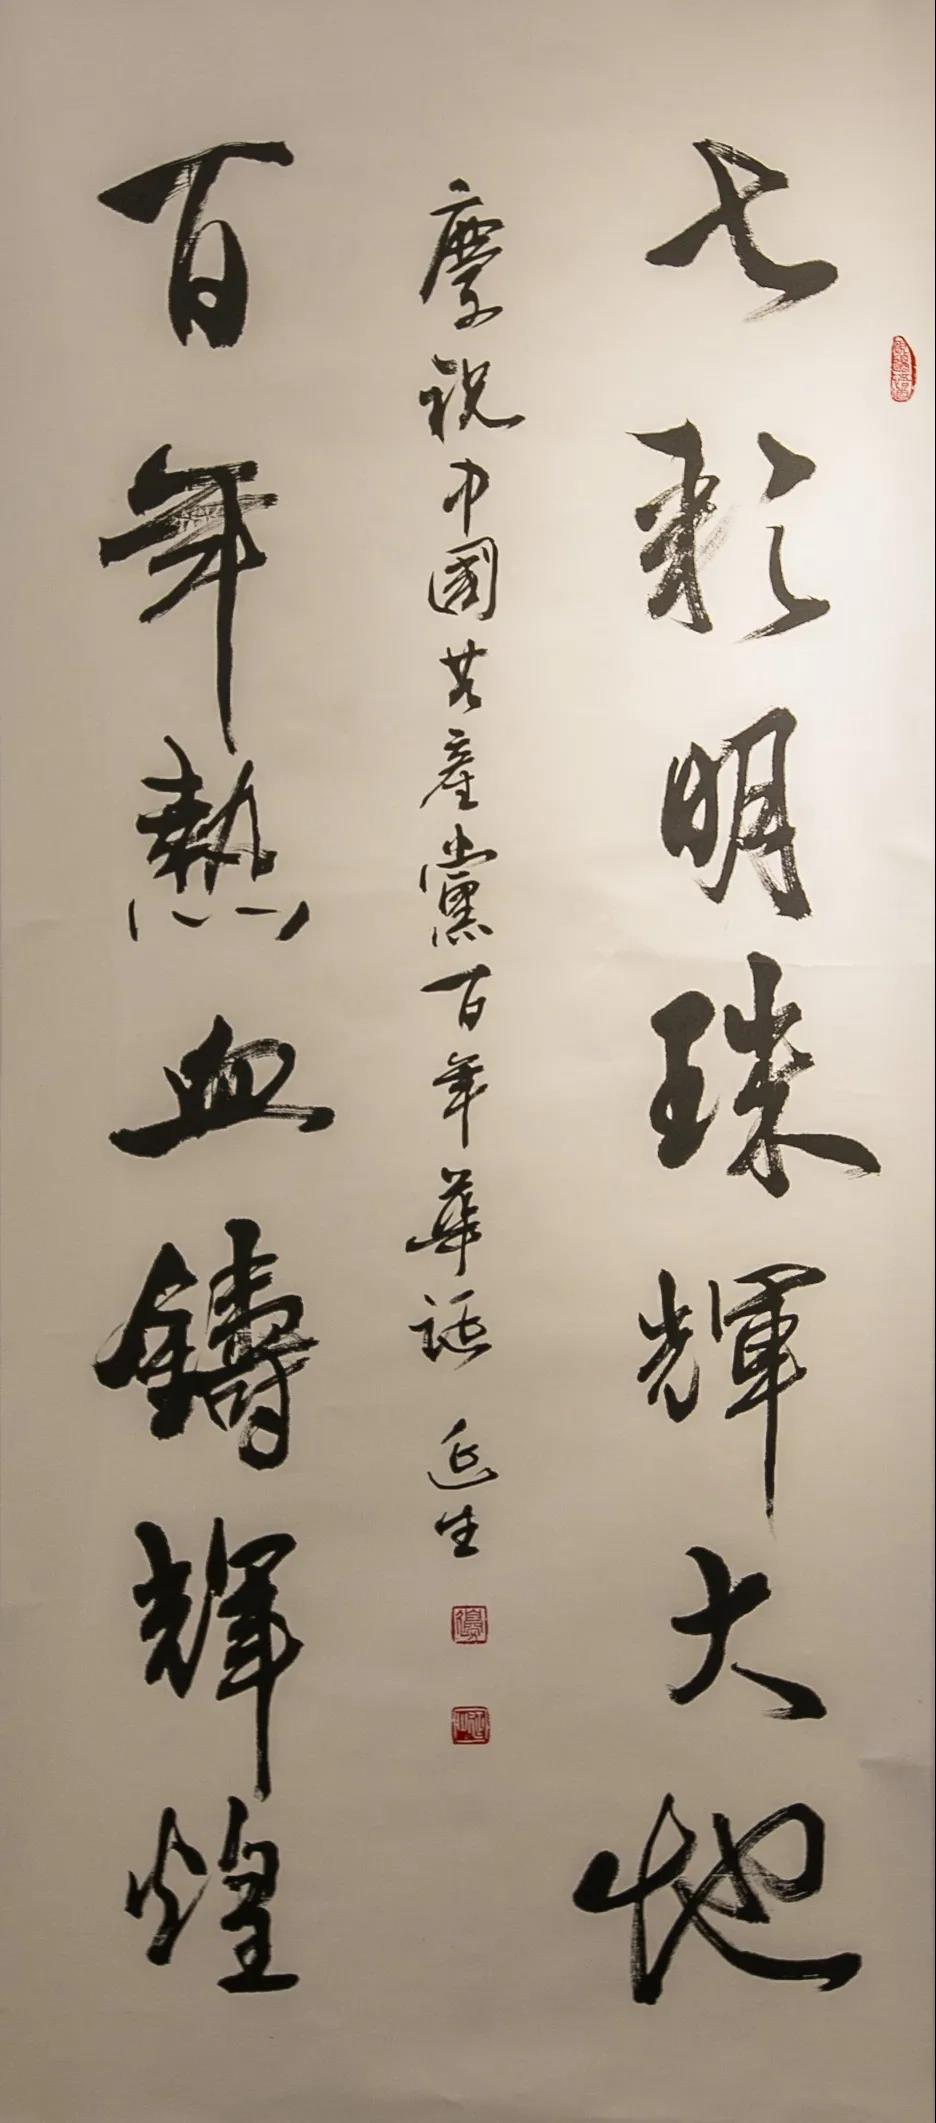 七彩明珠輝大地
慶祝中國共產黨百年華誕 延生
百年熱血鑄輝煌